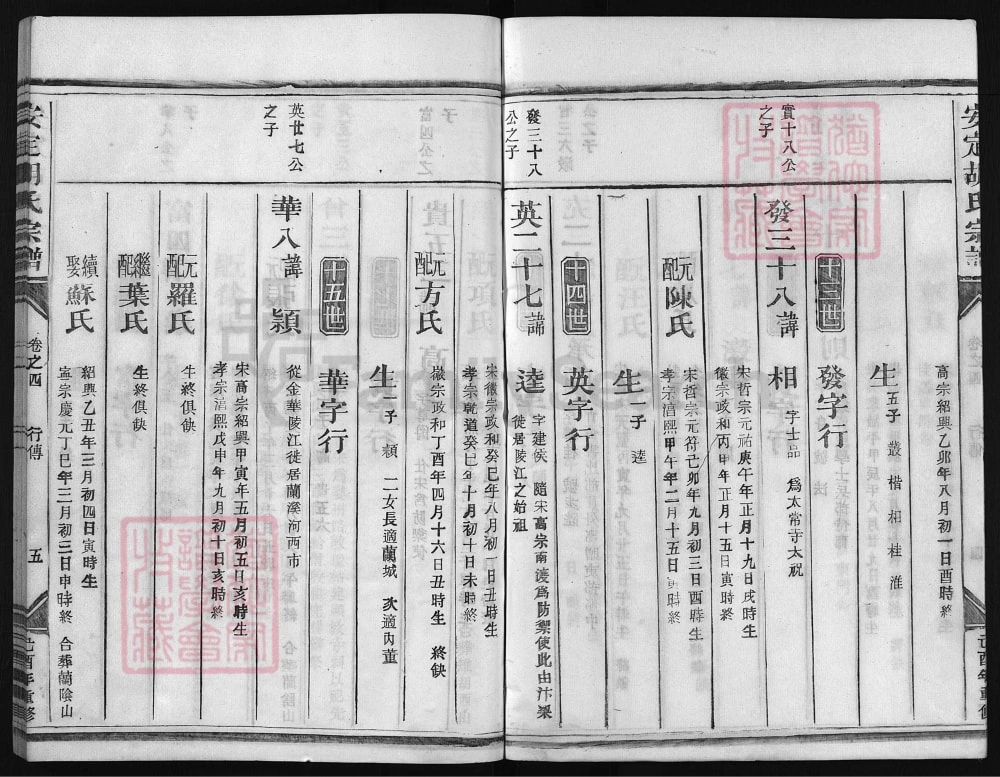 安定胡氏宗譜
己酉年重修
高宗紹興乙卯年八月初一日酉時終
生 五子 叢 楷 相 桂 淮
十三世 發字行
實十八公之子
發三十八諱 相 字士品 爲太常寺太祝
宋哲宗元祐庚午年正月十九日戌時生
徽宗政和丙申年正月十五日寅時終
元配陳氏
宋哲宗元符己卯年九月初三日酉時生
孝宗淳熙甲午年二月十五日時終
生 一子 逵
十四世 英字行
發三十八公之子
英二十七諱 逵 字建侯 隨宋高宗南渡爲防禦使此由汴梁
徙居陵江之始祖
宋徽宗政和癸巳年八月初一日丑時生
孝宗乾道癸巳年十月初十日未時終
元配方氏
徽宗政和丁酉年四月十六日丑時生 終缺
生 一子 穎 二女長適蘭城 次適內董
十五世 華字行
英廿七公之子
華八諱 穎
從金華陵江徙居蘭溪河西市
宋高宗紹興甲寅年五月初五日亥時生
孝宗淳熙戊申年九月初十日亥時終
元配羅氏
生終俱缺
繼配葉氏
生終俱缺
續娶蘇氏
紹興乙丑年三月初四日寅時生
寧宗慶元丁巳年三月初三日申時終 合葬蘭陰山
安定胡氏宗譜
卷之四
行傳
五
己酉年重修